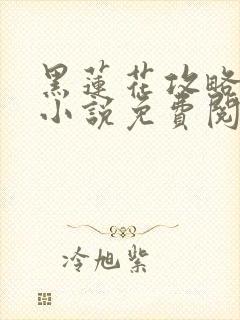 黑蓮花攻略
小說免費閱
冷旭紫